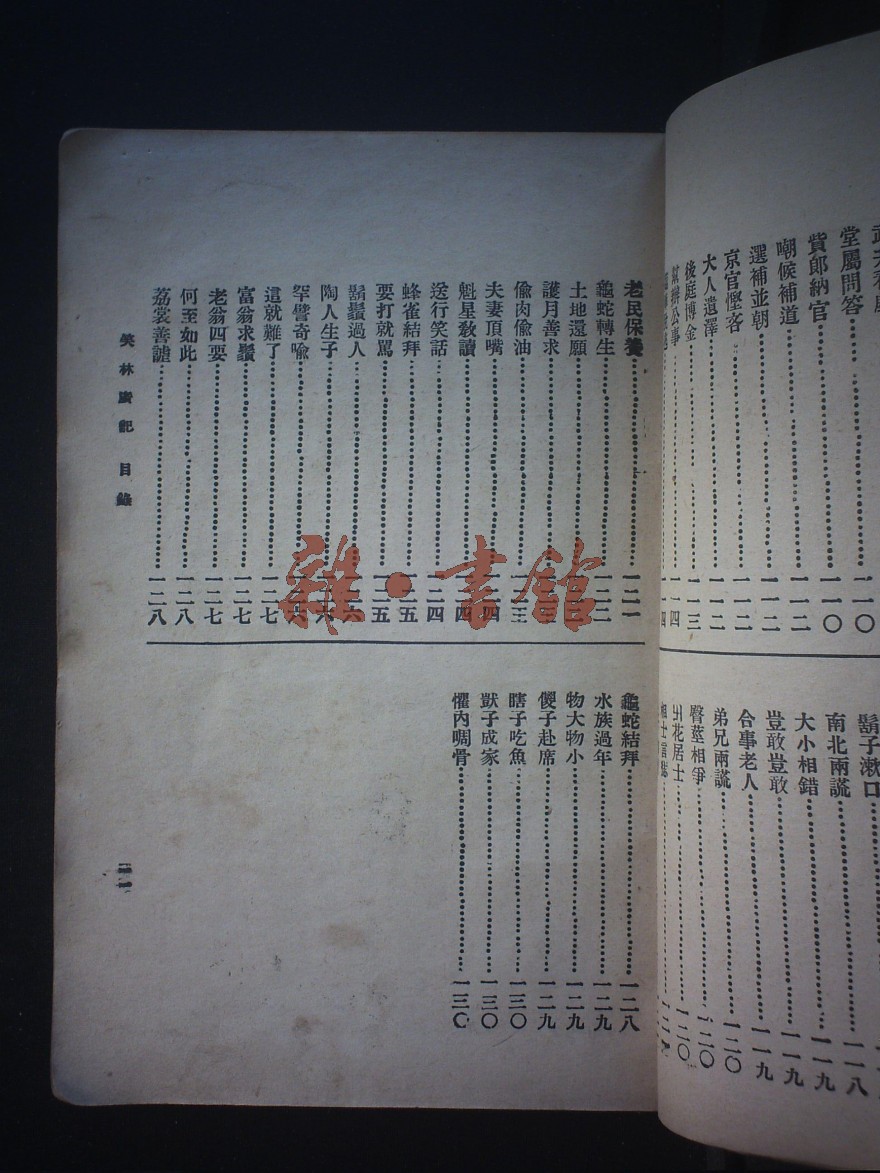 堂屬問答……一一〇
貲郎納官……一一〇
嘲候補道……一一二
選補並朝……一一二
京官慳吝……一一二
大人遺澤……一一二
後庭博金……一一三
幫辦公事……一一四
鬍子漱口
南北兩謊……一一八
大小相錯……一一九
豈敢豈敢……一一九
合事老人……一一九
弟兄兩謊……一二〇
臀莖相爭……一二〇
出花居士……一二〇
老民保養……一二一
龜蛇轉生……一二二
土地還願……
護月善求……
偷肉偷油……一二三
夫妻頂嘴……一二四
魁星教讀……一二四
送行笑話……一二四
蜂雀結拜……一二五
要打就罵……一二五
鬍鬚過人……一二六
陶人生子……一二六
罕譬奇喻……一二六
這就難了……一二七
富翁求鬚……一二七
老翁四要……一二七
何至如此……一二八
荔裳善謔……一二八
龜蛇結拜……一二八
水族過年……一二九
物大物小……一二九
傻子赴席……一二九
瞎子吃魚……一三〇
獃子成家……一三〇
懼內啁骨……一三〇
笑林廣記 目錄
雜·書館